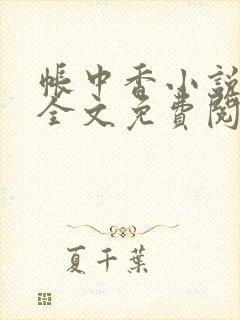 帳中香小說
全文免費閱
夏千葉